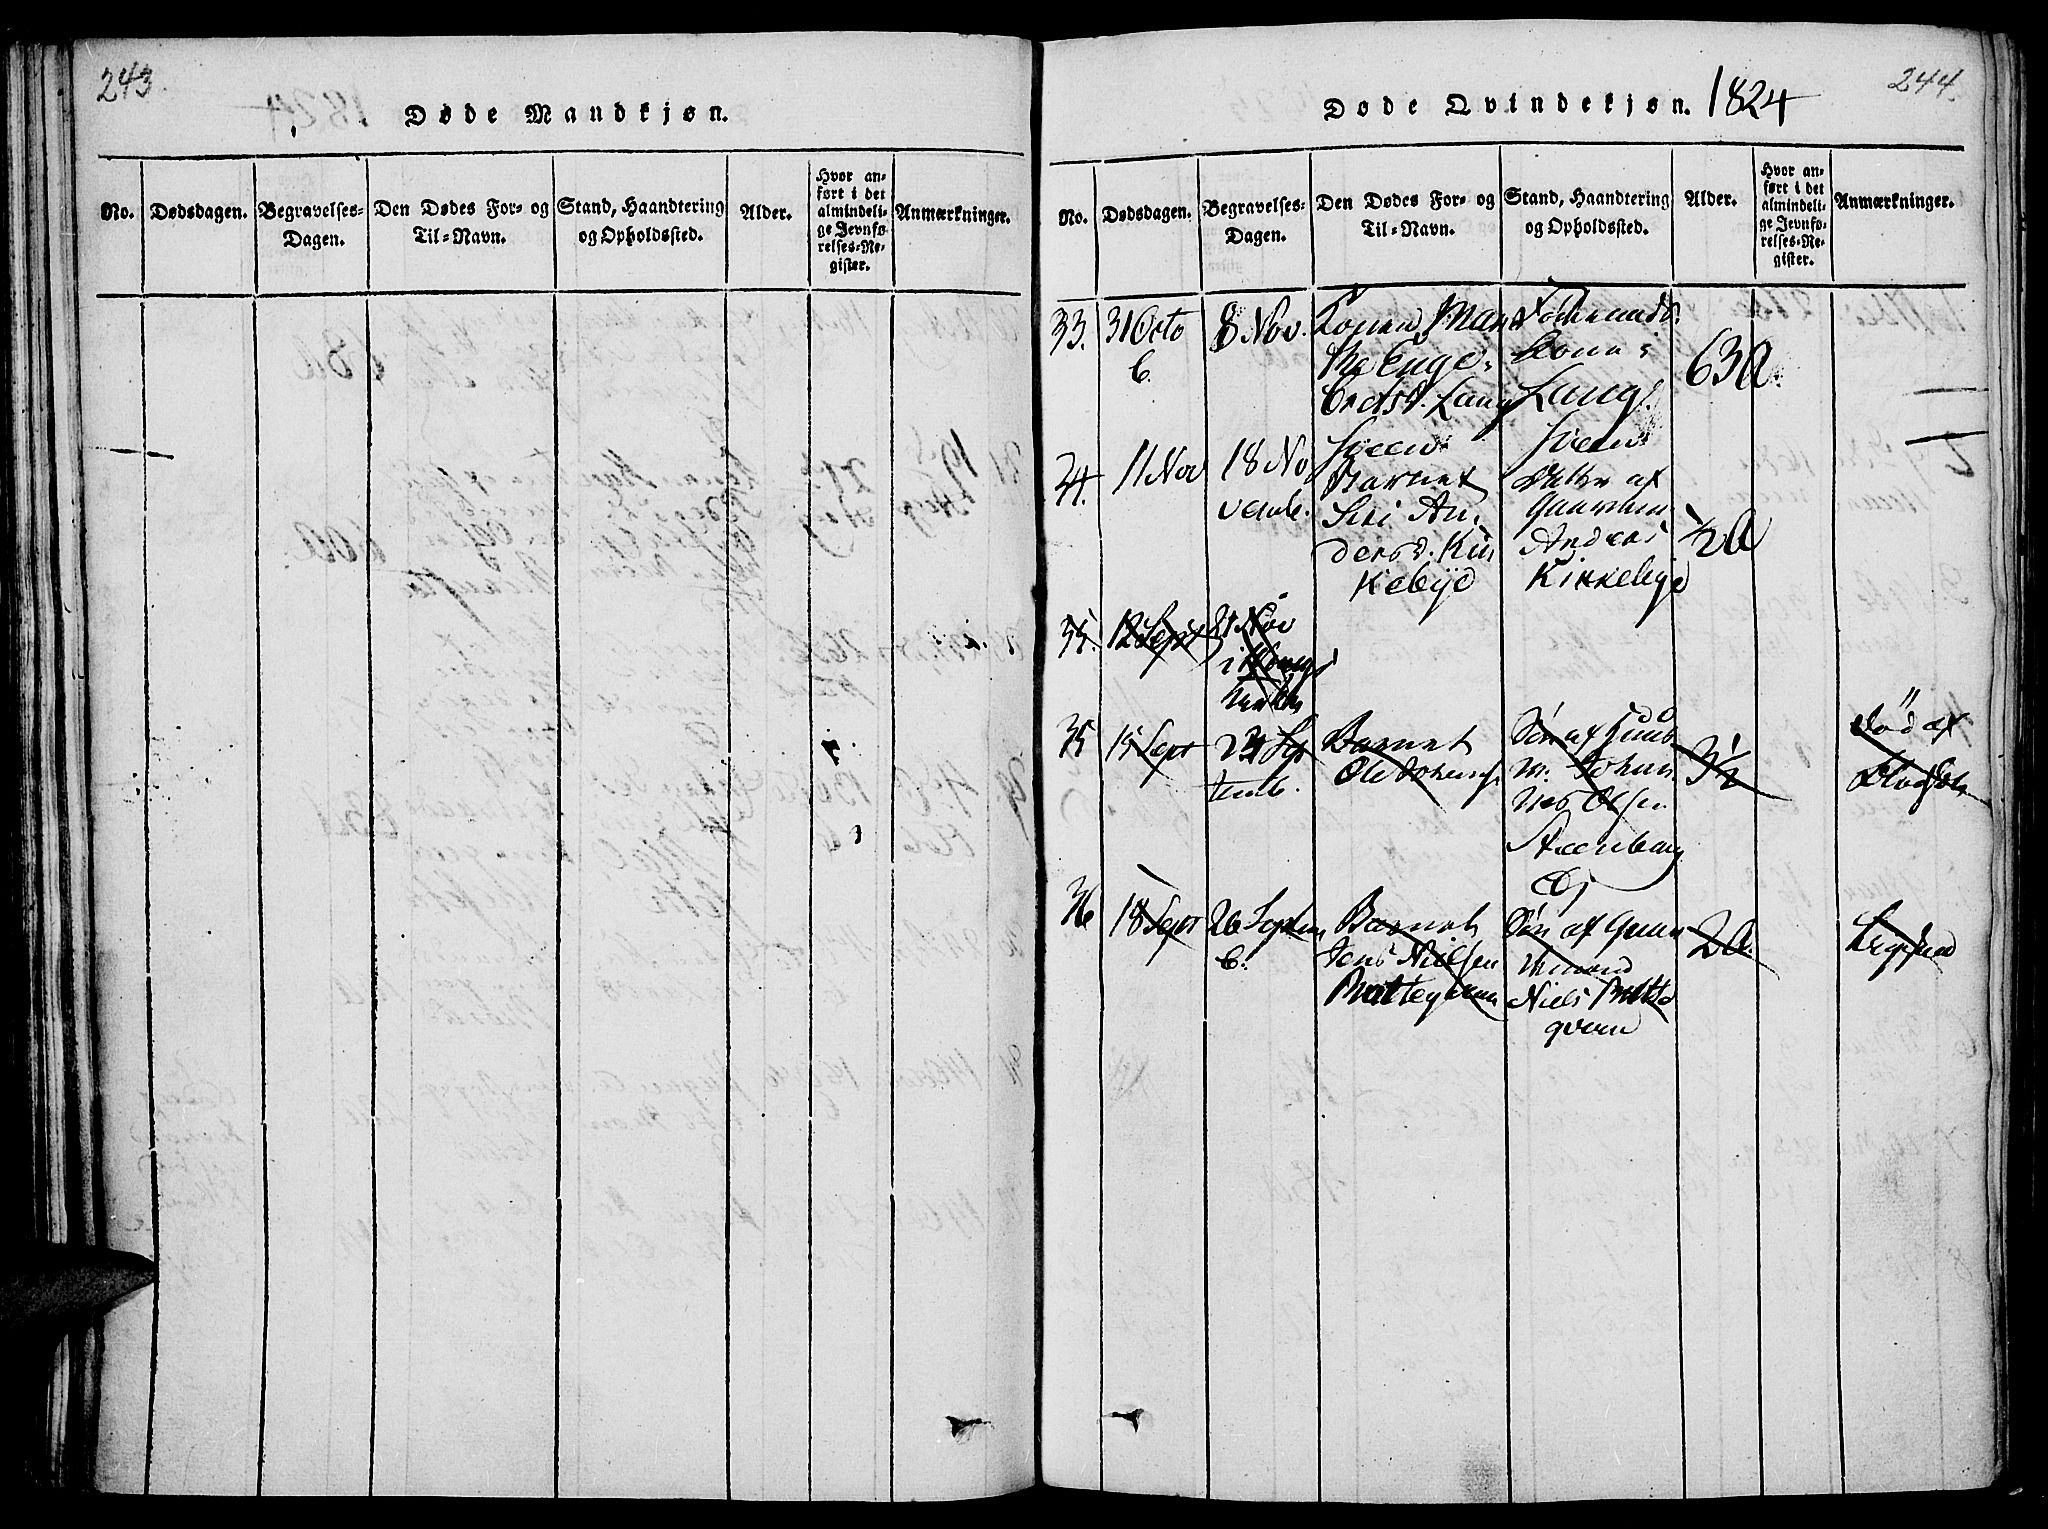 243.
Døde Mandkjøn.
No.
Dødsdagen.
Begravelses-
Dagen.
Den Dødes For- og
Til-Navn.
Stand, Haandtering
og Opholdssted.
Alder.
Hvor an-
ført i det
almindeli-
ge Jevnfø-
relses-Re-
gister.
Anmærkninger.
244.
Døde Qvindekjøn. 1824
No.
Dødsdagen.
Begravelses-
Dagen.
Den Dødes For- og
Til-Navn.
Stand, Haandtering
og Opholdssted.
Alder.
Hvor an-
ført i det
almindeli-
ge Jevnfø-
relses-Re-
gister.
Anmærkninger.
33.
31 Octo
b.
8 Nov.
Konen Mar
the Enge-
bretsd. Lang
Kone
Lang
63 a.
34.
11 Nov
18 No
vemb.
Barnet
Siri An-
dersd. Kir
kebye
Datter af
Gaardm.
Anders
Kirkebye
1/2 a
35.
12 Sept
21 Nov
35
15 Sept
23 Sep
temb.
Barnet
Ole Johans.
Søn af
m. Johan
nes Olsen
3 1/2
død af
36
18 Sept
26 Septem
b.
Barnet
Jens Nielsen
Søn af Gaar
mand
Niels
qvern
2 a.